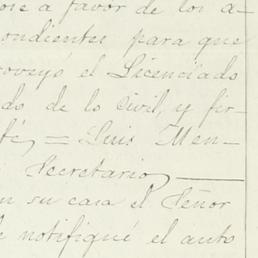 se a favor de los a-
pondientes para que
proveyó el Licenciado
do de lo Civil, y fir-
fé, = Luis Men-
Secretario, ———
en su casa el Señor
le notifiqué el auto